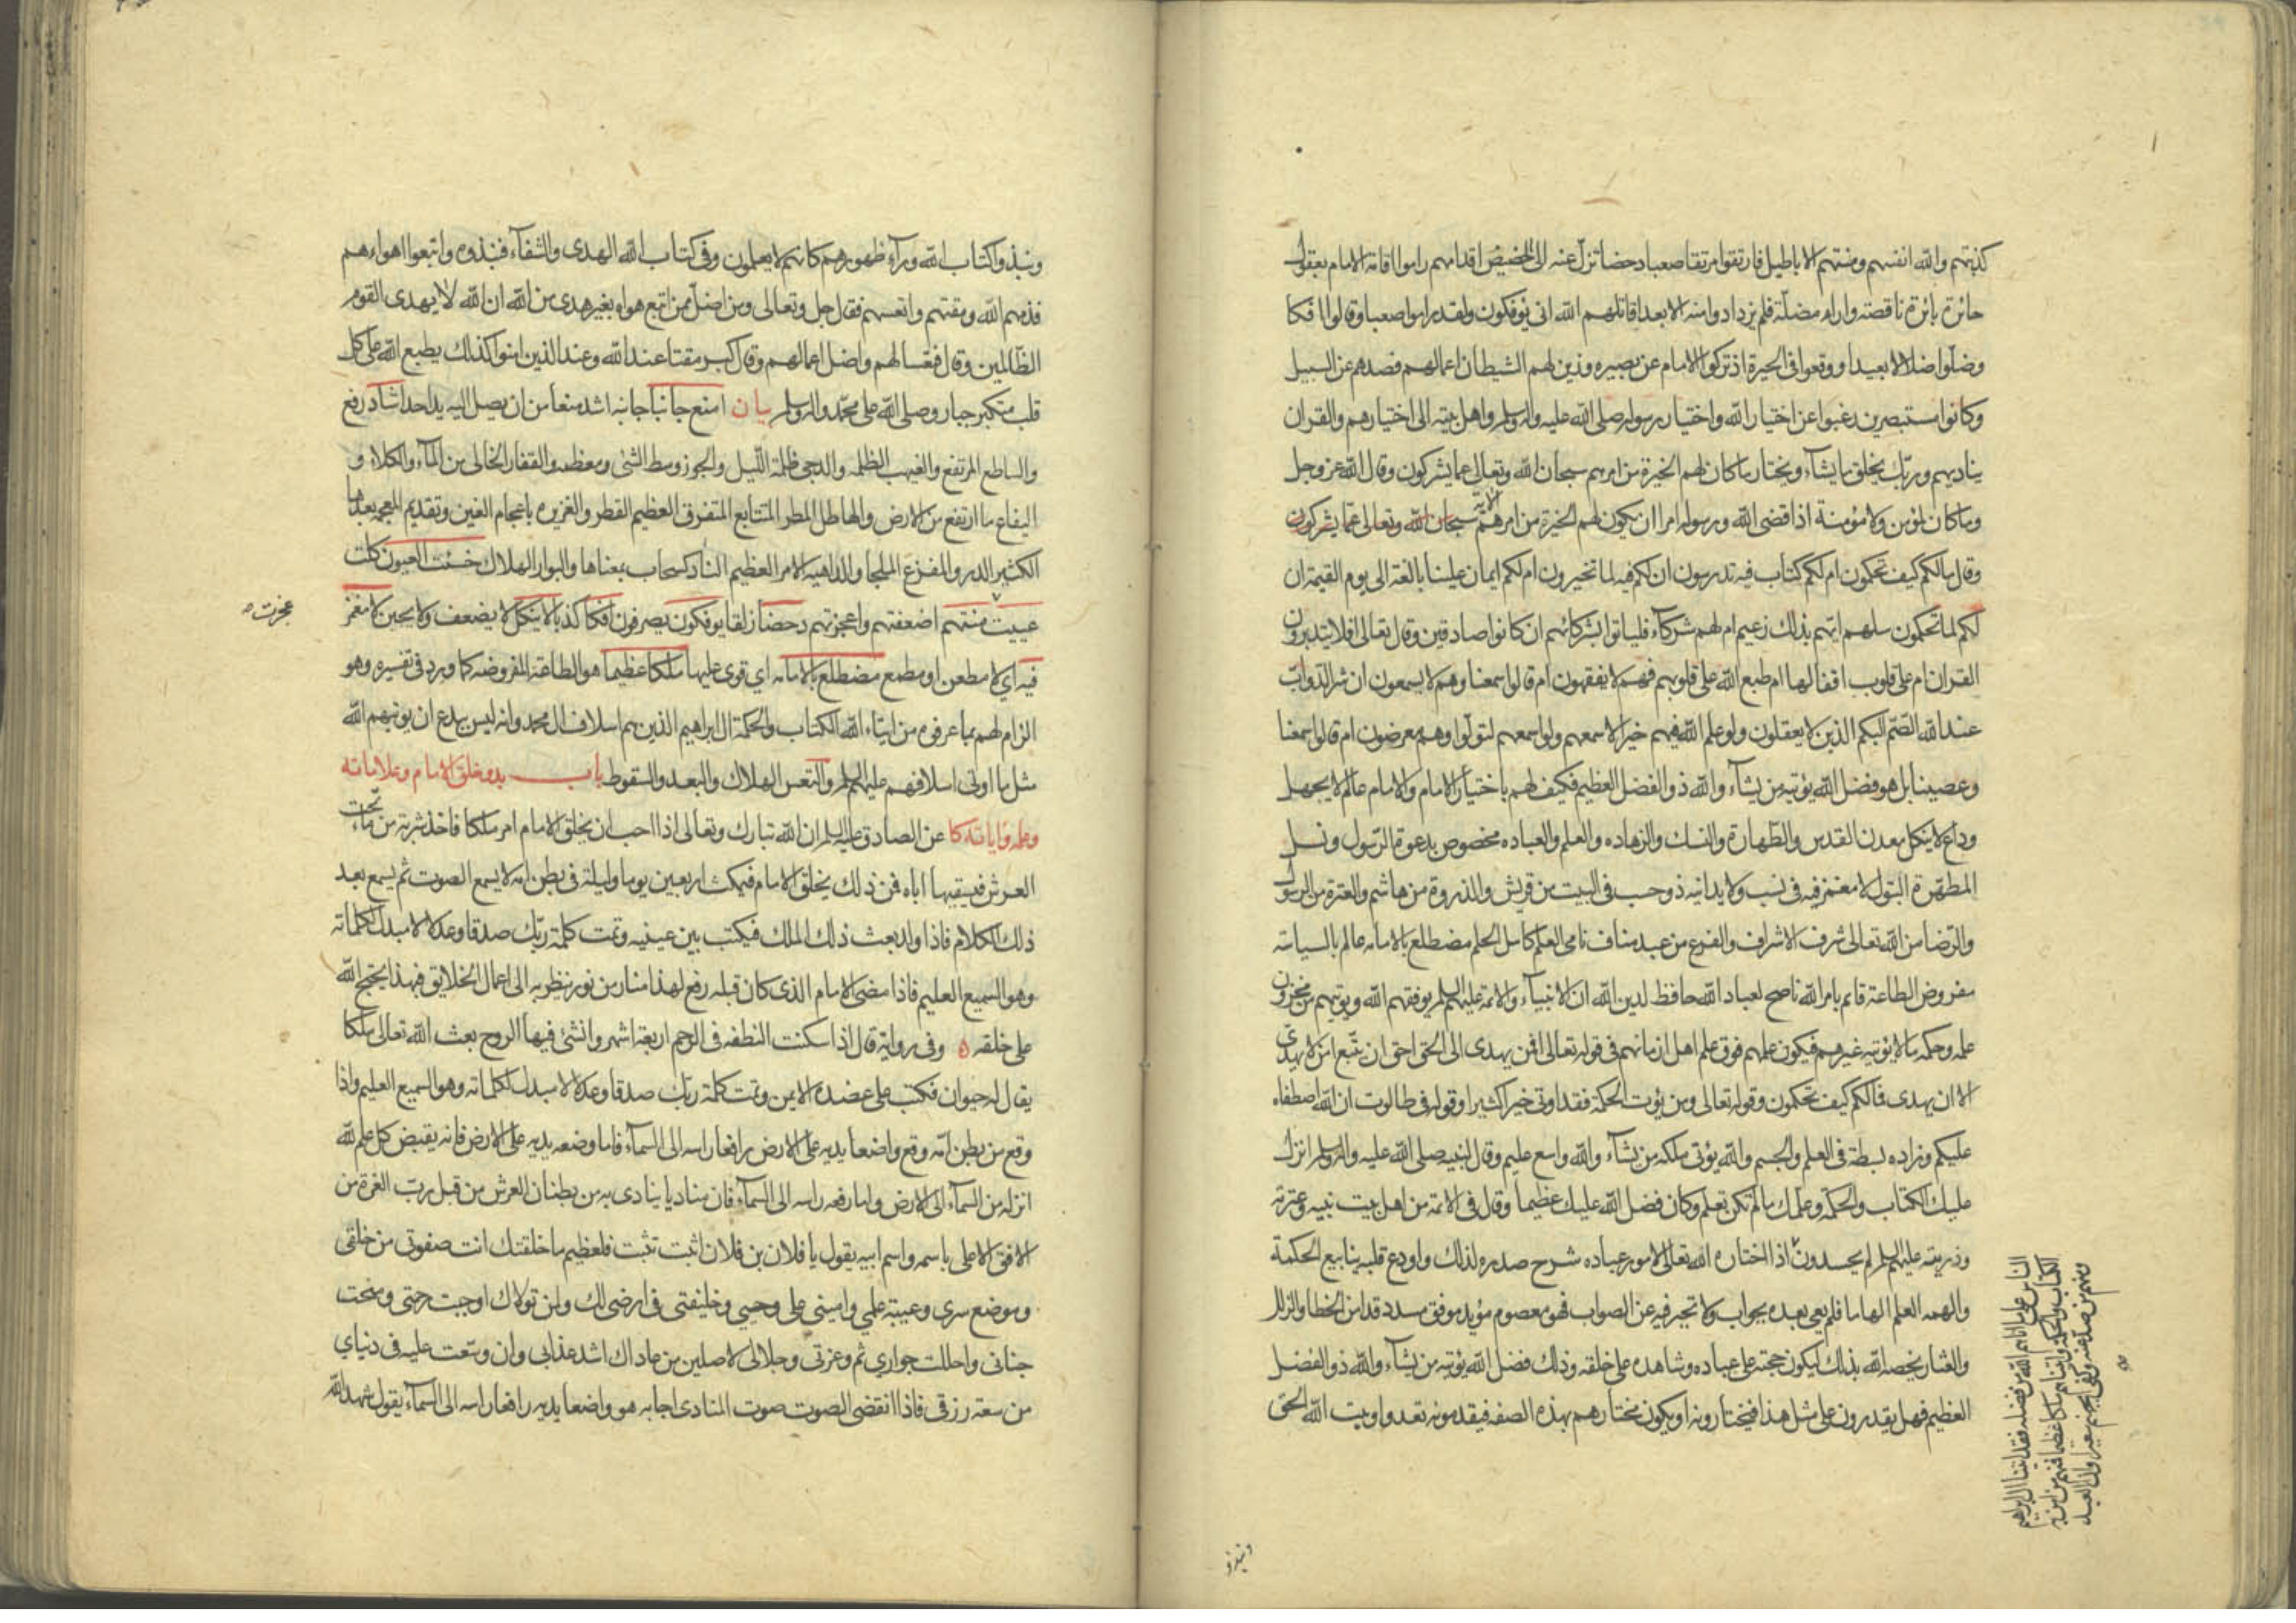 كذبتهم والله انفسهم ومنتهم الاباطيل فارتقوا مرتقا صعبا دحضا تزل عنه الى الحضيض اقدامهم راموا اقامة الامام بعقول
حائرة بائرة ناقصة واراء مضلة فلم يزدادوا منه الا بعدا قاتلهم الله انى يؤفكون ولقد راموا صعبا وقالوا افكا
وضلوا ضلالا بعيدا ووقعوا فى الحيرة اذ تركوا الامام عن بصيره وزين لهم الشيطان اعمالهم فصدهم عن السبيل
وكانوا مستبصرين رغبوا عن اختيار الله واختيار رسوله صلى الله عليه واله وسلم واهل بيته الى اختيارهم والقران
يناديهم وربك يخلق ما يشآء ويختار ما كان لهم الخيرة من امرهم سبحان الله وتعالى عما يشركون وقال الله عز وجل
وما كان لمؤمن ولا مؤمنة اذا قضى الله ورسوله امرا ان يكون لهم الخيرة من امرهم الآية سبحان الله وتعالى عما يشركون
وقال مالكم كيف تحكمون ام لكم كتاب فيه تدرسون ان لكم فيه لما تخيرون ام لكم ايمان علينا بالغة الى يوم القيمة ان
لكم لما تحكمون سلهم ايهم بذلك زعيم ام لهم شركآء فلياتوا بشركائهم ان كانوا صادقين وقال تعالى افلا يتدبرون
القران ام على قلوب اقفالها ام طبع الله على قلوبهم فهم لا يفقهون ام قالوا سمعنا وهم لا يسمعون ان شر الدواب
عند الله الصم البكم الذين لا يعقلون ولو علم الله فيهم خيرا لاسمعهم ولو اسمعهم لتولوا وهم معرضون ام قالوا سمعنا
وعصينا بل هو فضل الله يؤتيه من يشآء والله ذو الفضل العظيم فكيف لهم باختيار الامام والامام عالم لا يجهل
وداع لا ينكل معدن القدس والطهارة والنسك والزهاده والعلم والعباده مخصوص بدعوة الرسول ونسل
المطهرة البتول لا مغمز فيه فى نسب ولا يدانيه ذو حسب فى البيت من قريش والذروة من هاشم والعترة من الرسول
والرضا من الله تعالى شرف الاشراف والفرع من عبد مناف نامى العلم كامل الحلم مضطلع بالامامه عالم بالسياسة
مفروض الطاعة قائم بامر الله ناصح لعباد الله حافظ لدين الله ان الانبيآء والائمة عليهم السلم يوفقهم الله ويؤتيهم من مخزون
علمه وحكمه ما لا يؤتيه غيرهم فيكون علمهم فوق علم اهل زمانهم فى قوله تعالى افمن يهدى الى الحق احق ان يتبع امن لا يهدى
الا ان يهدى فمالكم كيف تحكمون وقوله تعالى ومن يؤت الحكمة فقد اوتى خيرا كثيرا وقوله فى طالوت ان الله اصطفاه
عليكم وزاده بسطة فى العلم والجسم والله يؤتى ملكه من يشآء والله واسع عليم وقال لنبيه صلى الله عليه واله وسلم انزل
عليك الكتاب والحكمة وعلمك ما لم تكن تعلم وكان فضل الله عليك عظيما وقال فى الائمة من اهل بيت نبيه وعترته
وذريته عليهم السلم ام يحسدون اذا اختاره الله تعالى لامور عباده شرح صدره لذلك واودع قلبه ينابيع الحكمة
والهمه العلم الهاما فلم يعى بعده بجواب ولا تحير فيه عن الصواب فهو معصوم مؤيد موفق مسدد قد امن الخطا والزلل
والعثار يخصه الله بذلك ليكون حجته على عباده وشاهده على خلقه وذلك فضل الله يؤتيه من يشآء والله ذو الفضل
العظيم فهل يقدرون على مثل هذا فيختارونه او يكون مختارهم بهذه الصفه فيقدمونه تعدوا وبيت الله الحق
الناس على ما اتاهم الله من فضله فقد اتينا ال ابراهيم
الكتاب والحكمة واتيناهم ملكا عظيما فمنهم من امن به
ومنهم من صد عنه وكفى بجهنم سعيرا وان العبد
ونبذوا
ونبذوا كتاب الله ورآء ظهورهم كانهم لا يعلمون وفى كتاب الله الهدى والشفآء فنبذوه واتبعوا اهواءهم
فذمهم الله ومقتهم واتعسهم فقال جل وتعالى ومن اضل ممن اتبع هواه بغير هدى من الله ان الله لا يهدى القوم
الظالمين وقال فتعسا لهم واضل اعمالهم وقال كبر مقتا عند الله وعند الذين امنوا كذلك يطبع الله على كل
قلب متكبر جبار وصلى الله على محمد واله وسلم بيان امنع جانبا جانبه اشد منعا من ان يصل اليه يد احد اشاد رفع
والساطع المرتفع والغيهب الظلمه والدجى ظلمة الليل والجوز وسط الشئ ومعظمه والقفار الخالى من المآء والكلاء و
اليفاع ما ارتفع من الارض والهاطل المطر المتتابع المتفرق العظيم القطر والغزيره باعجام الغين وتقديم المعجمه بعدها
الكثير الدر والمفزع الملجا والداهيه الامر العظيم الناد كسحاب بمعناها والبوار الهلاك خسئت العيون كلت
عييت منتهم اضعفتهم واعجزتهم دحضا زلقا يوفكون يصرفون افكا كذبا لا ينكل لا يضعف ولا يجبن لا مغمز
عجزت
فيه اي لا مطعن او مطمع مضطلع بالامامه اي قوى عليها ملكا عظيما هو الطاعة المفروضه كما ورد فى تفسيره وهو
الزام لهم بما عرفوه من ايتاء الله الكتاب والحكمة ال ابراهيم الذين هم اسلاف ال محمد وانه ليس ببدع ان يؤتيهم الله
مثل ما اوتى اسلافهم عليهم السلم والتعس الهلاك والبعد والسقوط باب بدو خلق الامام وعلاماته
وعلمه واياته كا عن الصادق عليه السلم ان الله تبارك وتعالى اذا احب ان يخلق الامام امر ملكا فاخذ شربة من مآء تحت
العرش فيسقيها اباه فمن ذلك يخلق الامام فيمكث اربعين يوما وليلة فى بطن امه لا يسمع الصوت ثم يسمع بعد
ذلك الكلام فاذا ولد بعث ذلك الملك فيكتب بين عينيه وتمت كلمة ربك صدقا وعدلا لا مبدل لكلماته
وهو السميع العليم فاذا مضى الامام الذى كان قبله رفع لهذا منار من نور ينظر به الى اعمال الخلايق فبهذا يحتج الله
على خلقه ه وفى رواية قال اذا سكنت النطفه فى الرحم اربعة اشهر وانشئ فيها الروح بعث الله تعالى ملكا
يقال له حيوان فكتب على عضده الايمن وتمت كلمة ربك صدقا وعدلا لا مبدل لكلماته وهو السميع العليم واذا
وقع من بطن امه وقع واضعا يديه على الارض رافعا راسه الى السمآء فاما وضعه يديه على الارض فانه يقبض كل علم لله
انزله من السمآء الى الارض واما رفعه راسه الى السمآء فان مناديا ينادى به من بطنان العرش من قبل رب العزة من
الافق الاعلى باسمه واسم ابيه يقول يا فلان بن فلان اثبت تثبت فلعظيم ما خلقتك انت صفوتى من خلقى
وموضع سرى وعيبة علمى وامينى على وحيى وخليفتى فى ارضى لك ولمن تولاك اوجبت رحمتى ومنحت
جنانى واحللت جوارى ثم وعزتى وجلالى لاصلين من عاداك اشد عذابى وان وسعت عليه فى دنياى
من سعة رزقى فاذا انقضى الصوت صوت المنادى اجابه هو واضعا يديه رافعا راسه الى السمآء يقول شهد الله